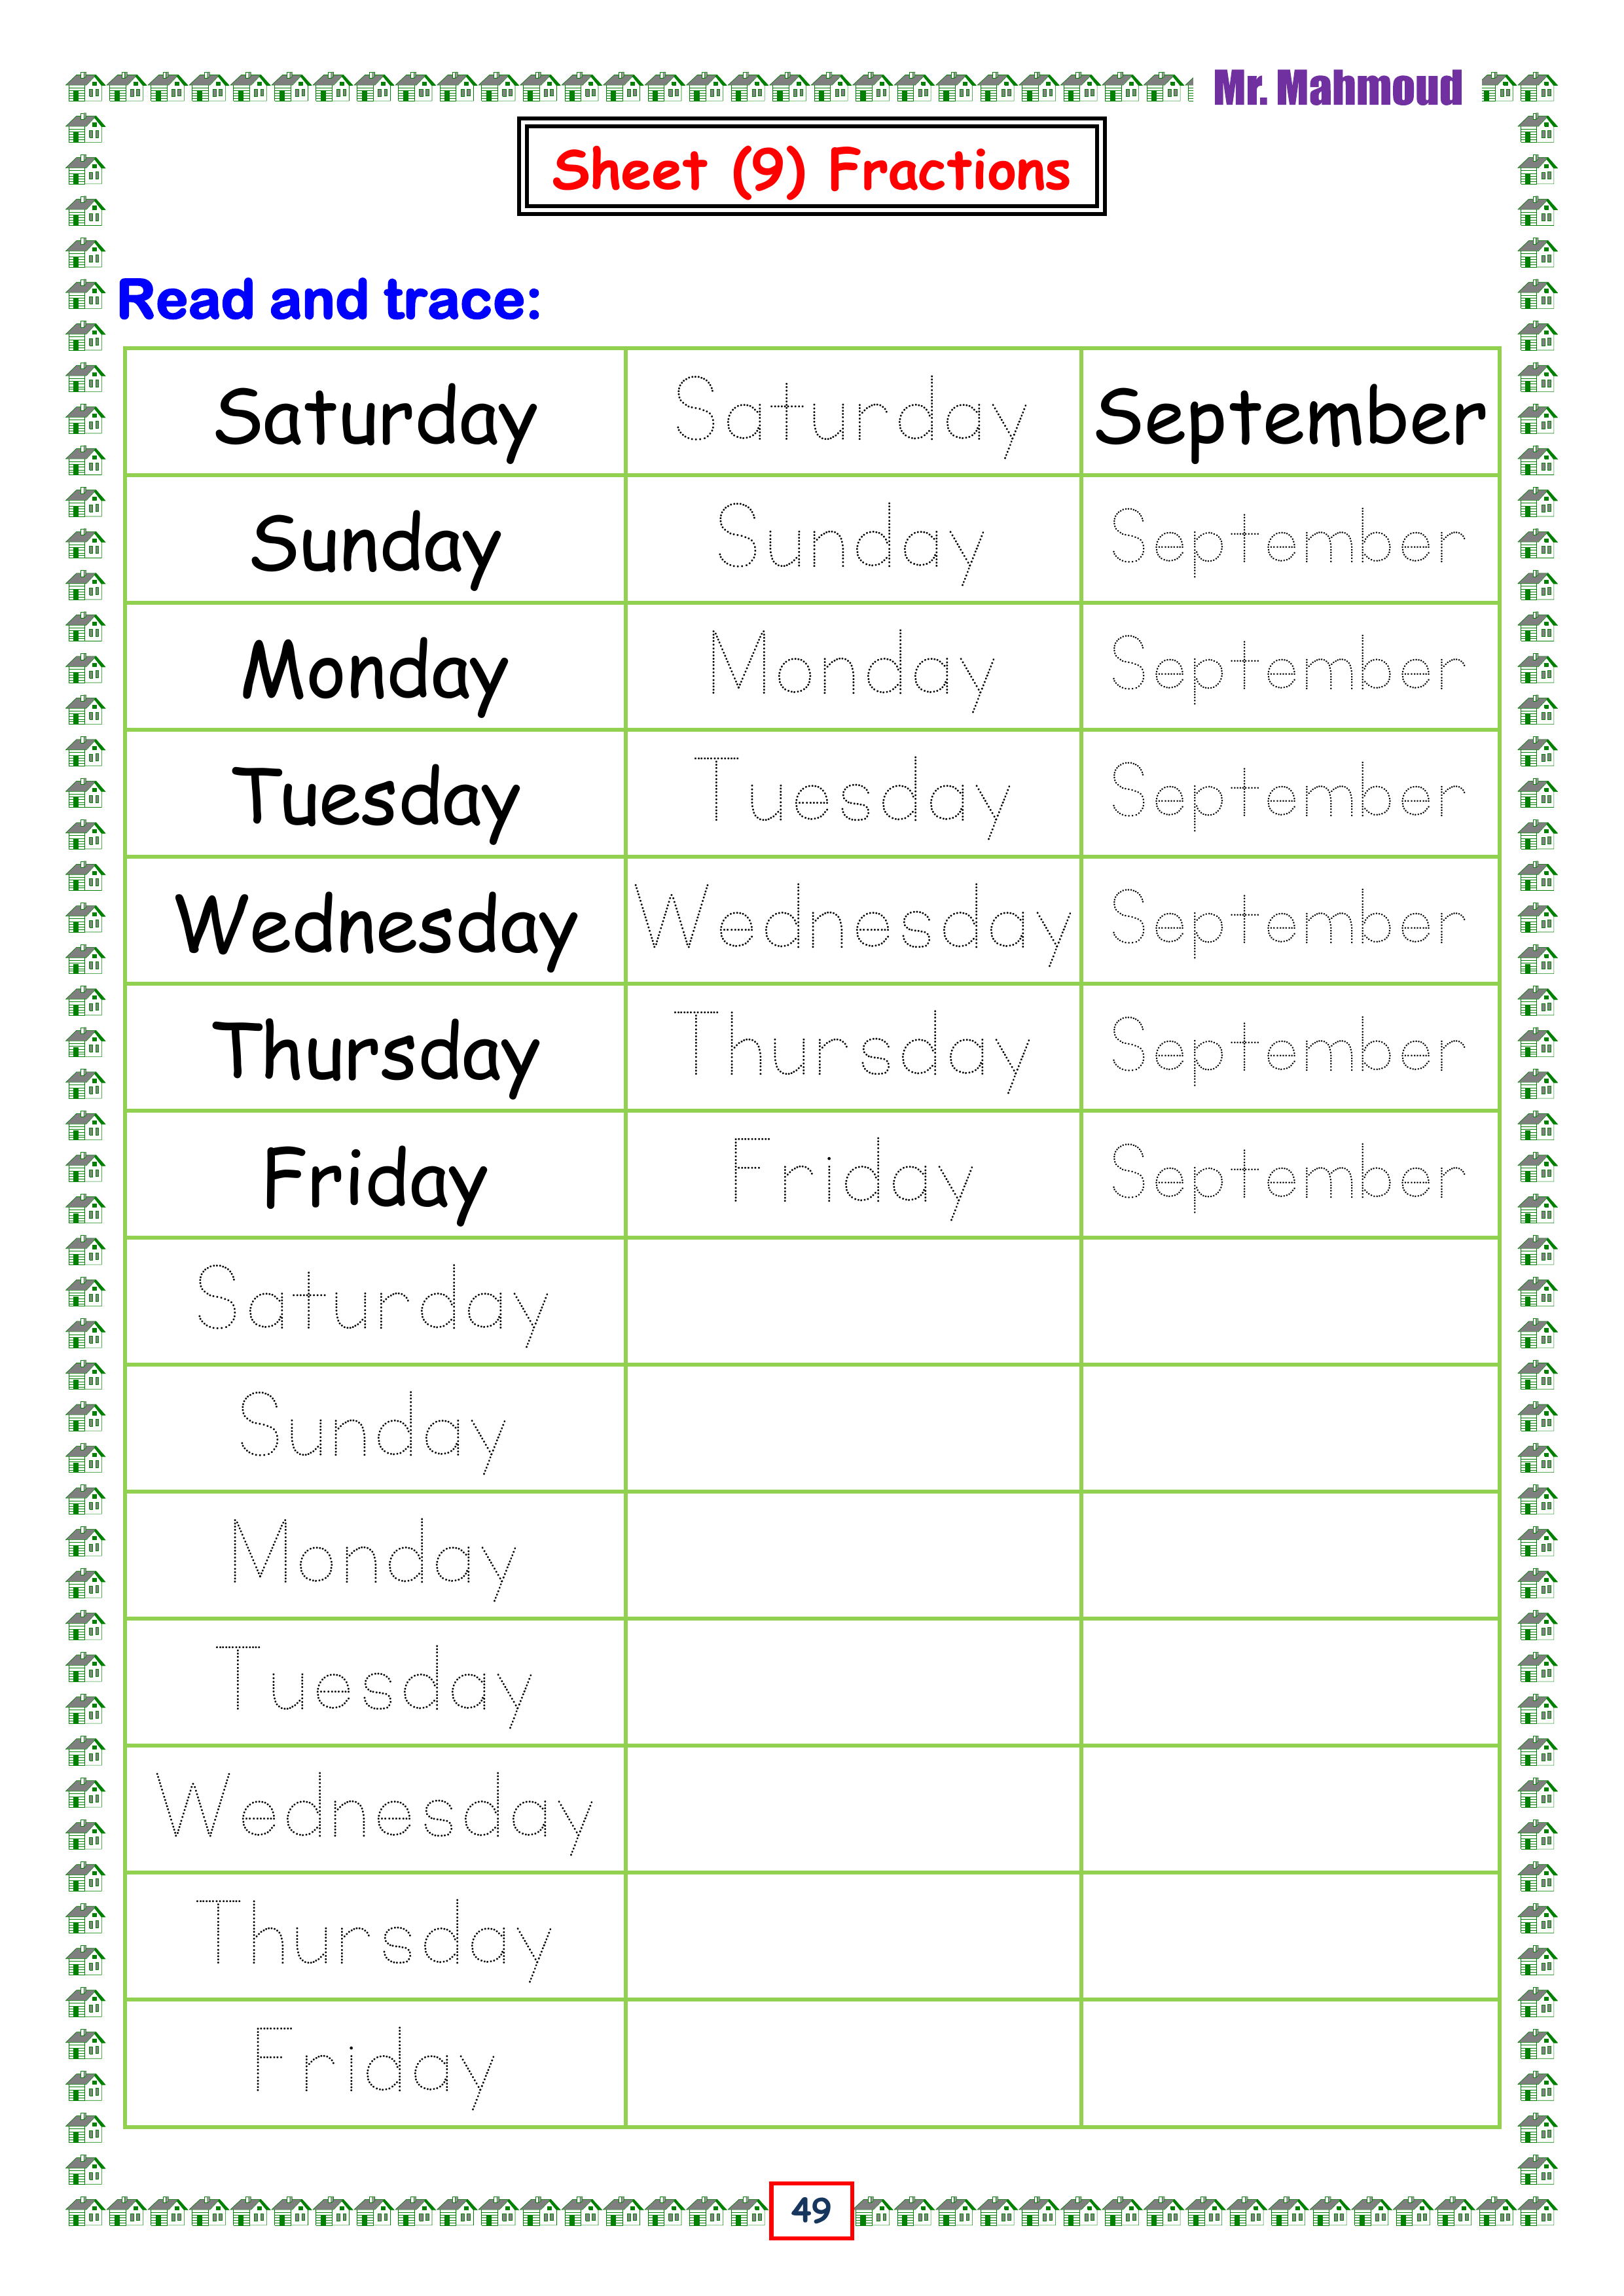 Mr. Mahmoud
Sheet (9) Fractions
Read and trace:
Saturday Saturday September
Sunday Sunday September
Monday Monday September
Tuesday Tuesday September
Wednesday Wednesday September
Thursday Thursday September
Friday Friday September
Saturday
Sunday
Monday
Tuesday
Wednesday
Thursday
Friday
49